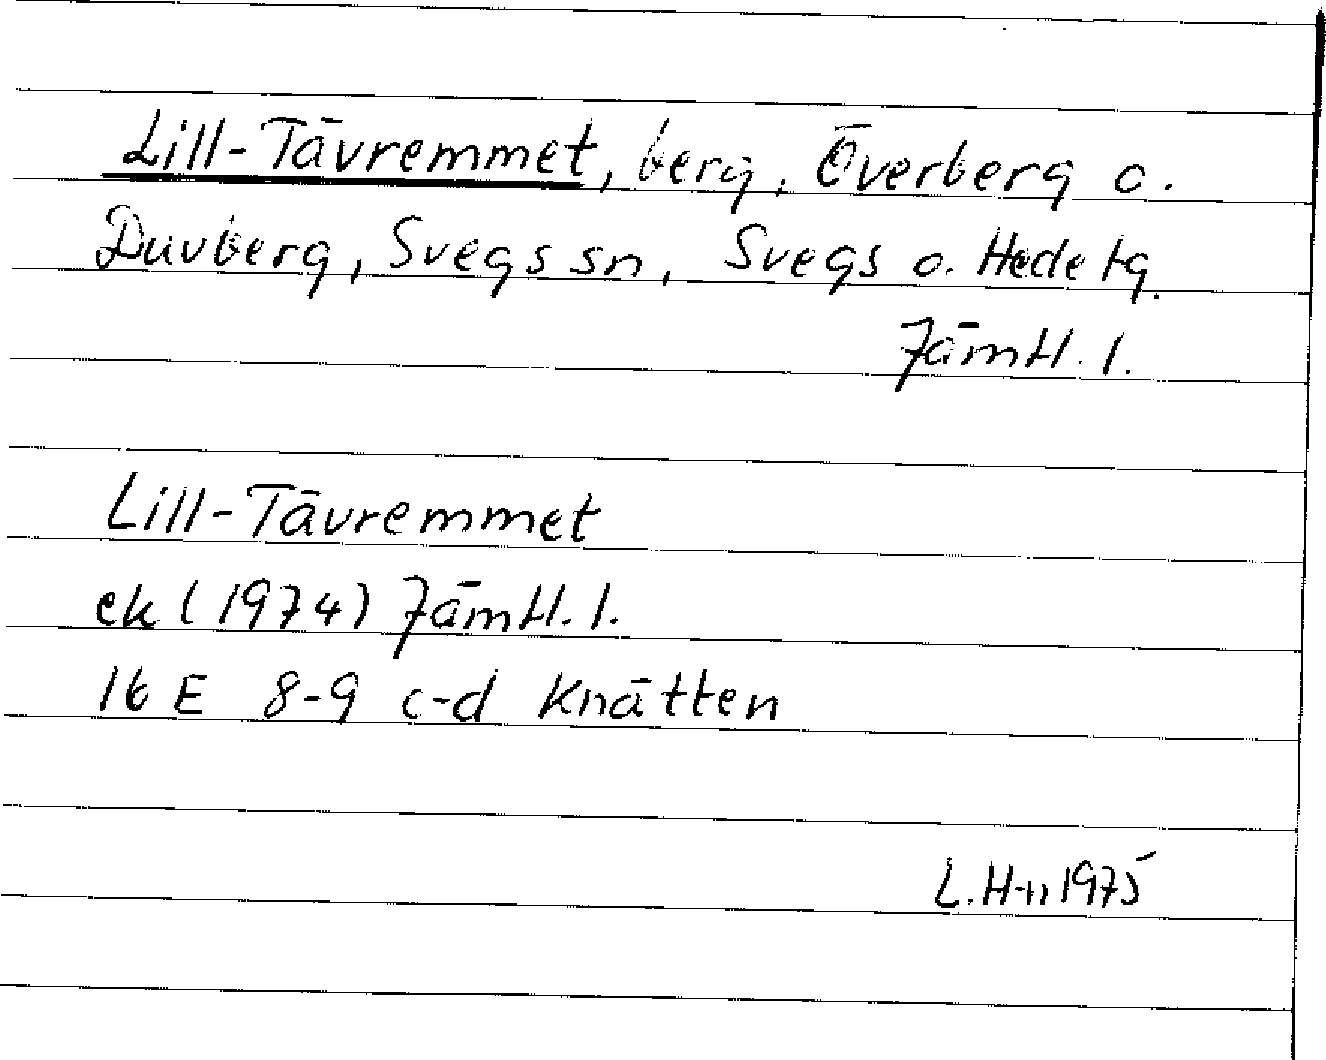 Lill-Tävremmet, berg, Överberg o.
Duvberg, Svegs sn, Svegs o. Hede tg.
Jämtl. l.
Lill-Tävremmet
ek (1974) Jämtl. l.
16 E 8-9 c-d Knätten
L. H-n 1975